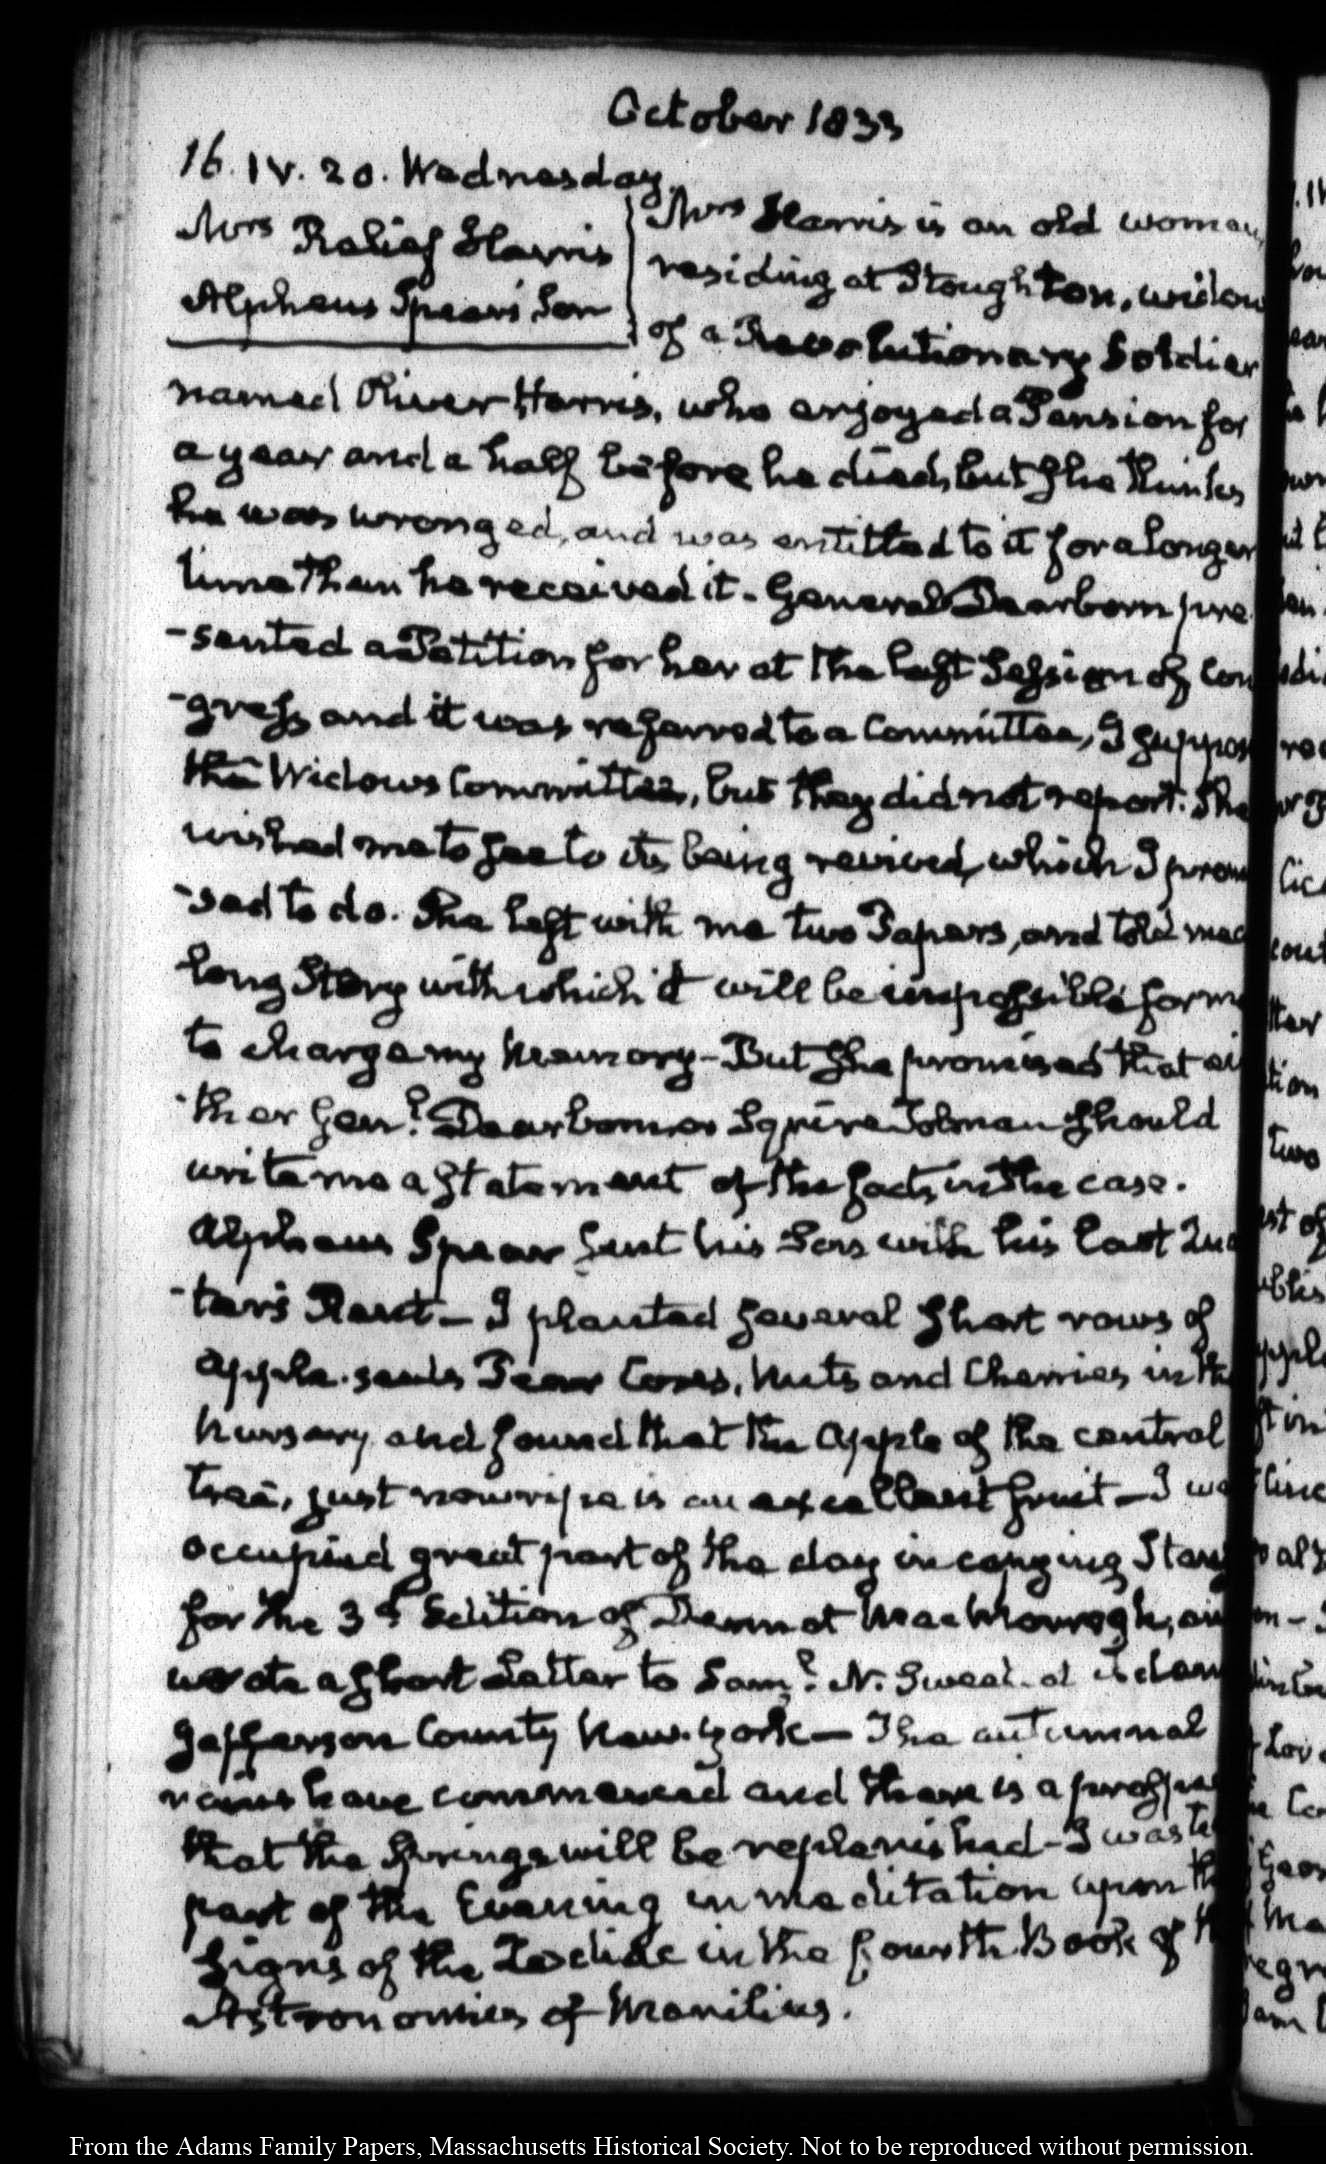 October 1833
16. IV. 20. Wednesday.
Mrs Relief Harris
Alpheus Spear's Son
Mrs Harris is an old woman
residing at Stoughton, widow
of a Revolutionary Soldier
named Oliver Harris, who enjoyed a Pension for
a year and a half before he died, but she thinks
he was wronged, and was entitled to it for a longer
time than he received it - General Dearborn pre
-sented a Petition for her at the last Session of Con
-gress and it was referred to a Committee, I suppose
the Widows Committee, but they did not report. She
wished me to see to its being revived, which I promi
-sed to do. She left with me two Papers, and told me a
long Story with which it will be impossible for me
to charge my Memory - But she promised that ei
-ther Genl. Dearborn, or Squire Tolman should
write me a statement of the facts in the case.
Alpheus Spear sent his Son with his last Quar
-ter's Rent - I planted several short rows of
apple-seeds Pear Cores, Nuts and Cherries in the
Nursery and found that the Apple of the central
tree, just now ripe is an excellent fruit - I was
occupied great part of the day in copying Stanz
for the 3d Edition of Dermot MacMorrogh, and
wrote a short Letter to Saml. N. Sweet at Adams
Jefferson County New-York - The autumnal
rains have commenced and there is a prospect
that the Springs will be replenished - I wasted
part of the Evening in meditation upon the
Signs of the Zodiac in the fourth Book of the
Astronomics of Manilius.
From the Adams Family Papers, Massachusetts Historical Society. Not to be reproduced without permission.